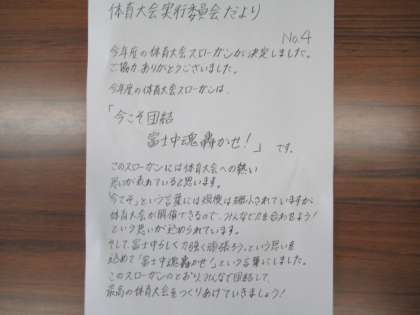 体育大会実行委員会だより
No.4
今年度の体育大会スローガンが決定しました。
ご協力ありがとうございました。
今年度の体育大会スローガンは、
「今こそ団結
富士中魂轟かせ!」です。
このスローガンには体育大会への熱い
思いが表れていると思います。
「今こそ」という言葉には規模は縮小されていますが、
体育大会が開催できるので、みんなで力を合わせよう!
という思いが込められています。
そして、富士中らしく力強く頑張ろう。という思いを
込めて「富士中魂轟かせ!」という言葉にしました。
このスローガンのとおり、みんなで団結して、
最高の体育大会をつくりあげていきましょう!